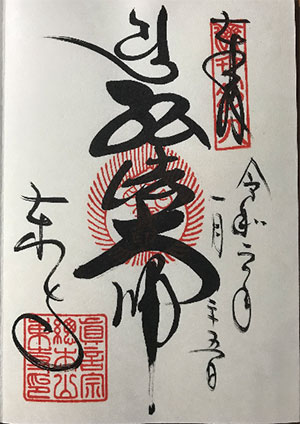 奉拝
令和二年
一月二十五日
弘法大師
東寺
真言宗
総本山
東寺印